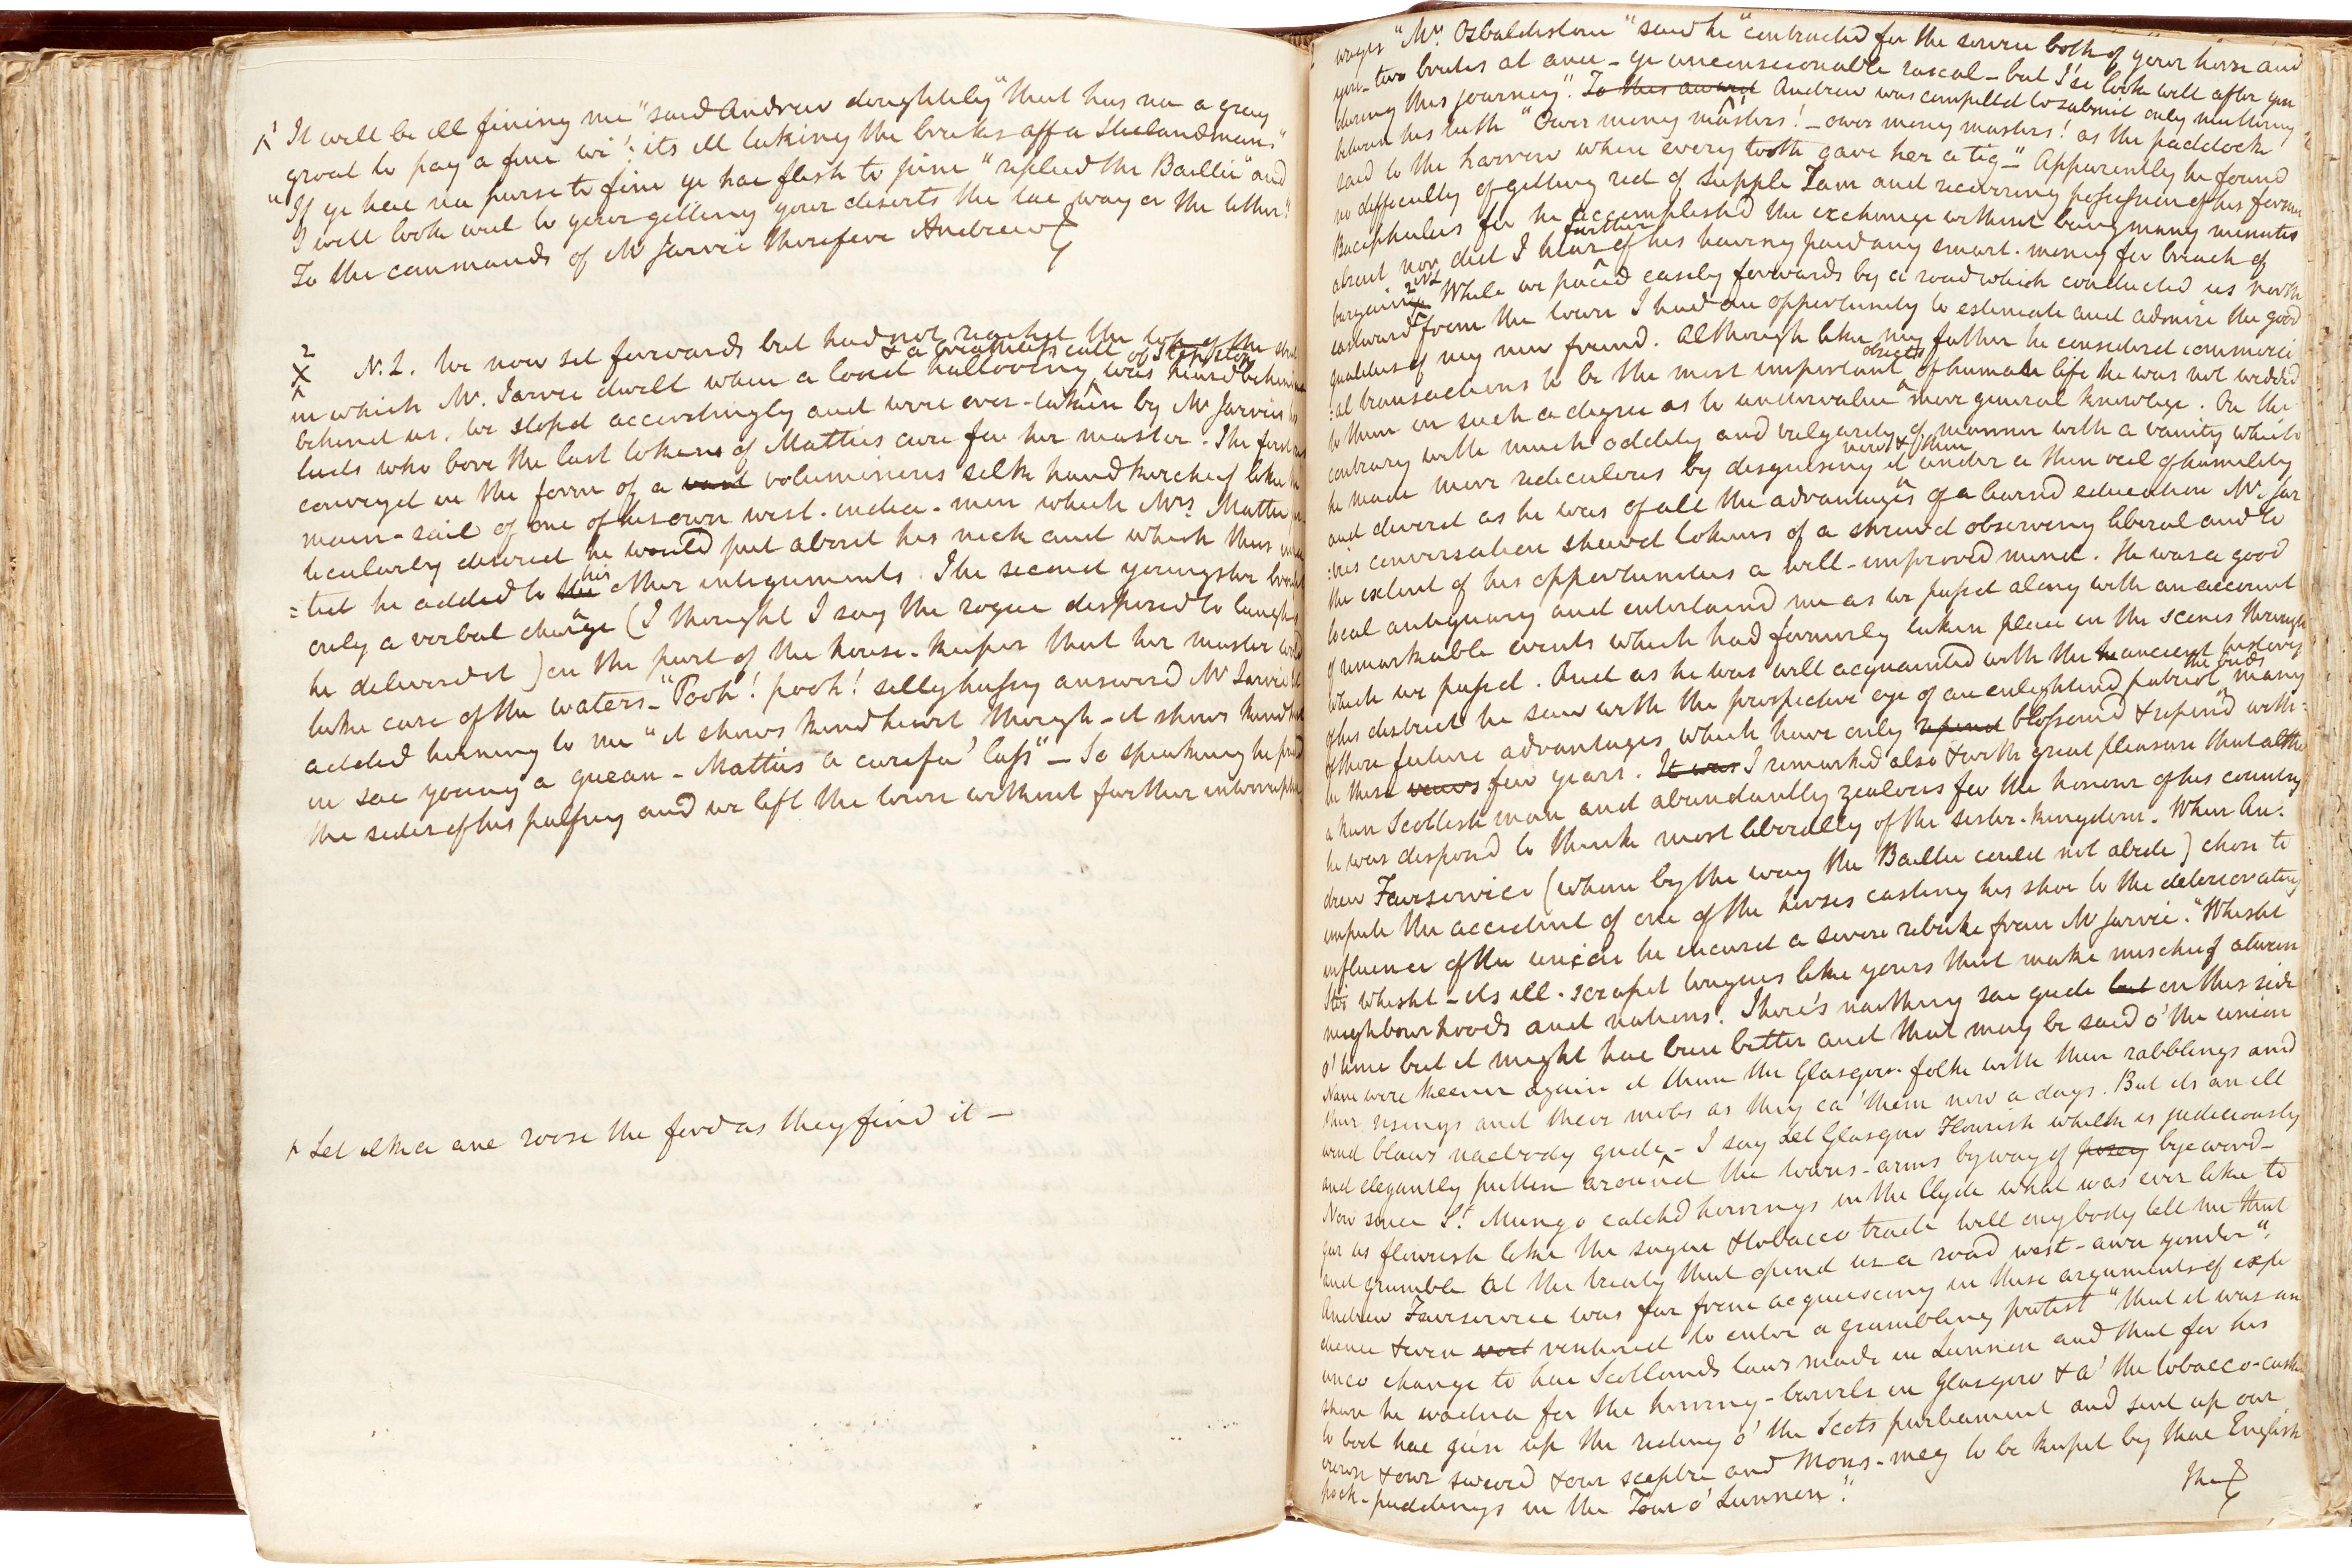 1 It will be ill fining me "said Andrew doughtily "that has na a gray
groat to pay a fine wi': its ill taking the breeks aff a Hielandman."
"If ye hae na purse to fine ye hae flesh to pine "replied the Baillie" and
I will look weel to your getting your deserts the tae way or the tither."
To the commands of Mr Jarvie therefore Andrew
2 X N.L. We now set forwards but had not reachd the top of the street
& a breathless call of
in which Mr. Jarvie dwelt when a loud hallooing was heard behind
behind us. We stopd accordingly and were over-taken by Mr Jarvies two
lads who bore the last tokens of Matties care for her master. The first was
conveyd in the form of a vast voluminous silk handkerchief like the
main-sail of one of his own west-india-men which Mrs. Mattie par
ticularly desired he would put about his neck and which thus
=ted he added to the his other integuments. The second youngster brought
only a verbal charge (I thought I saw the rogue disposed to laugh as
he deliverd it) on the part of the house-keeper that her master would
take care of the waters. "Pooh! pooh! silly hussy answerd Mr Jarvie but
added turning to me "it shows a kind heart though - it shows a kind heart
in sae young a quean - Mattie's a carefu' lass" - So speaking he pressd
the sides of his palfrey and we left the town without further interruption
^ Let ilka ane roose the ford as they find it -
wages "Mr. Osbaldistone "said he "contracted for the service both of your horse and
you - two brutes at ance - ye unconscionable rascal - but I'se look weel after you
during this journey". To this award Andrew was compelld to submit only muttering
between his teeth "Ower mony masters! - ower mony masters! as the paddock
said to the harrow when every tooth gave her a tig -" Apparently he found
no difficulty of getting rid of Supple Tam and recovering possession of his former
Bucephalus for he accomplishd the exchange without being many minutes
further
absent nor did I hear of his having paid any smart-money for breach of
2 N.L.
bargain. While we paced easily forwards by a road which conducted us north
eastward from the town I had an opportunity to estimate and admire the good
qualities of my new friend. Although like my father he considerd commerci
objects
:al transactions to be the most important of human life he was not wedded
to them in such a degree as to undervalue more general knowlege. On the
contrary with much oddity and vulgarity of manner with a vanity which
now & then
he made more ridiculous by disguising it under a thin veil of humility
and divested as he was of all the advantages of a learnd education Mr. Jar
:vies conversation shewd tokens of a shrewd observing liberal and to
the extent of his opportunities a well-improved mind. He was a good
local antiquary and entertaind me as we passd along with an account
of remarkable events which had formerly taken place in the scenes through
which we passd. And as he was well acquainted with the ancient history
the buds
of his district he saw with the prospective eye of an enlightend patriot many
of those future advantages which have only ripend blossomd & ripend with=
in these few years. It was I remarked also & with great pleasure that altho
a keen Scottish man and abundantly zealous for the honour of his country
he was disposed to think most liberally of the sister-kingdom. When An:
drew Fairservice (whom by the way the Baillie could not abide) chose to
impute the accident of one of the horses casting his shoe to the deteriorating
influence of the union he incurrd a severe rebuke from Mr Jarvie. "Whisht
Sir whisht - its ill-scrapet tongues like yours that make mischief atween
neighbourhoods and nations. There's naething sae gude but on this side
o' time but it might hae been better and that may be said o' the union
Nane were keener again it than the Glasgow-folk with their rabblings and
their risings and their mobs as they ca' them now a days. But its an ill
wind blaws naebody gude. - I say Let Glasgow Flourish whilk is judiciously
and elegantly putten around the towns-arms by way of posey bye word -
Now since St. Mungo catchd herrings in the Clyde what was ever like to
gar us flourish like the sugar & tobacco trade will ony body tell me that
and grumble at the treaty that opend us a road west-awa yonder".
Andrew Fairservice was far from acquiescing in these arguments of expe
dience & even ventured to enter a grumbling protest "that it was an
unco change to hae Scotlands laws made in Lunnon and that for his
share he wadna for the herring-barrels in Glasgow & a' the tobacco-casks
to boot hae gien up the riding o' the Scots parliament and sent up our
crown & our sword & our sceptre and Mons-meg to be keepit by thae English
pock-puddings in the Tour o' Lunnon."
The